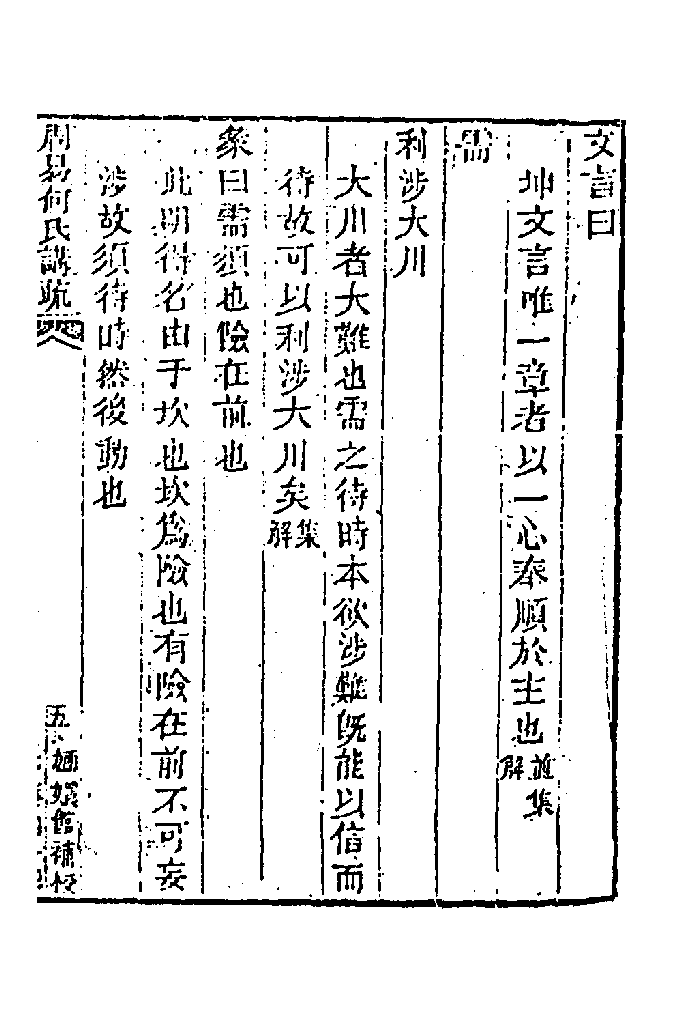 文言曰
坤文言唯一章者以一心奉順於主也並集解
需
利涉大川
大川者大難也需之待時本欲涉難既能以信而
待故可以利涉大川矣集解
彖曰需須也險在前也
此明得名由于坎也坎為險也有險在前不可妄
涉故須待時然後動也
周易何氏講疏
五 嫏嬛館補校